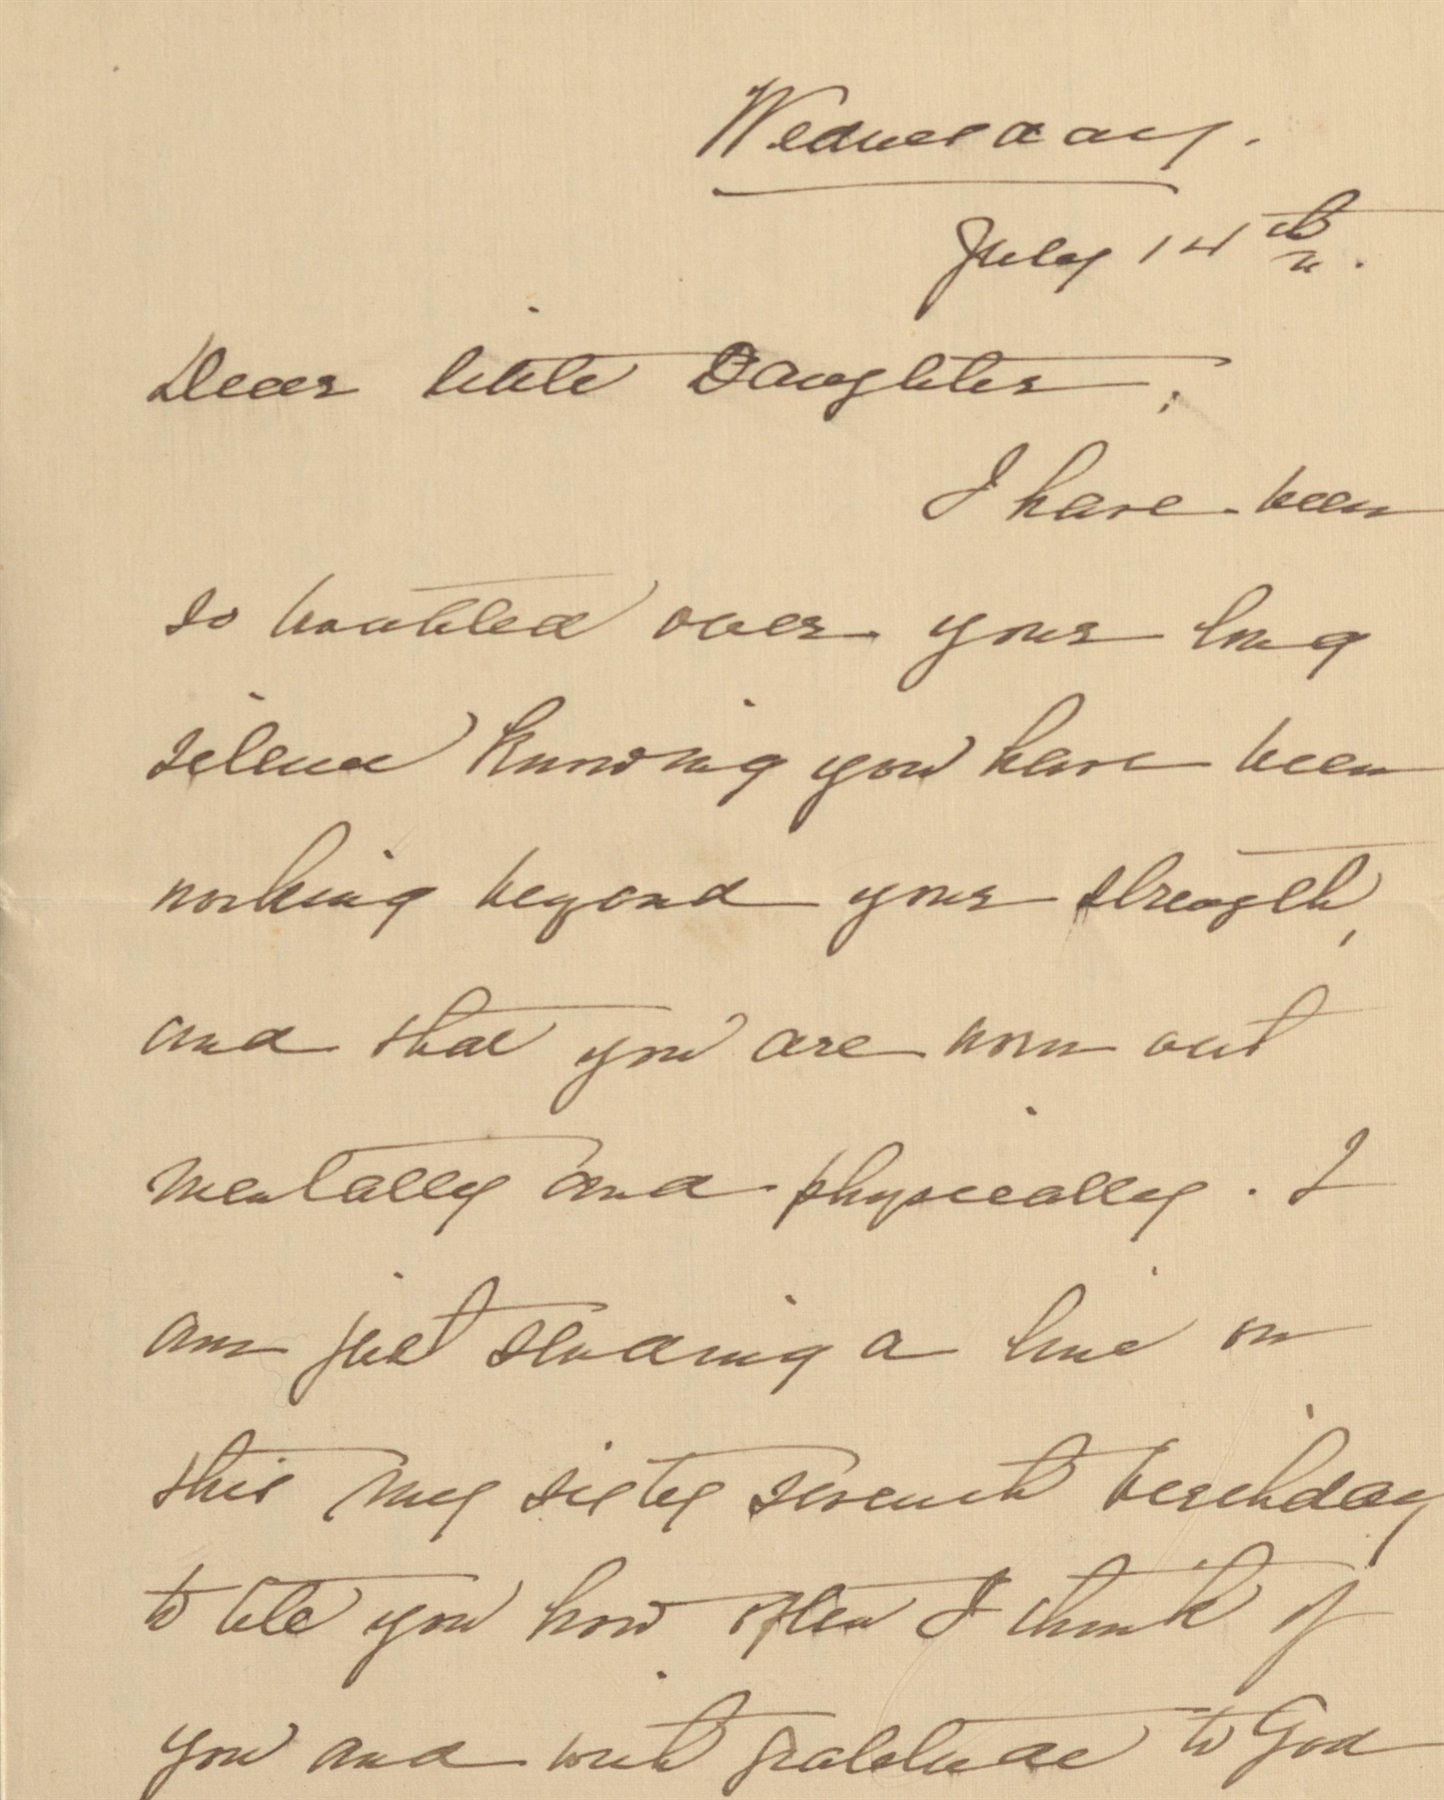 Wednesday.
July 14th.
Dear little Daughter;
I have been
so troubled over your long
silence knowing you have been
working beyond your strength,
and that you are worn out
mentally and physically. I
am just sending a line on
this my sixty seventh birthday
to tell you how often I think of
you and with gratitude to God